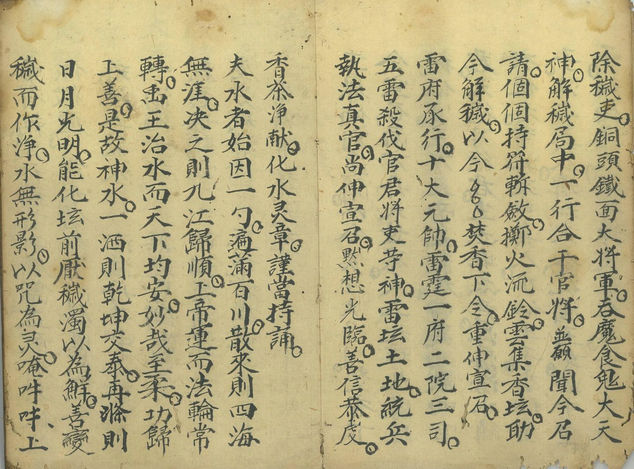 除穢吏銅頭鐵面大將軍吞魔食鬼大天
神解穢局中一行合干官將並願聞今召
請個個持符斬斂擲火流鈴雲集香坛助
今解穢以今焚香下令重伸宣召
雷府承行十大元帥雷霆一府二院三司
五雷殺伐官君將吏等神雷坛土地統兵
執法真官尚伸宣召黙想光臨善信恭虔
香茶净献化水灵章謹當持誦
夫水者始因一勺遍滿百川散來則四海
無涯决之則九江歸順上帝運而法輪常
轉禹王治水而天下均安妙哉至柔功歸
上善是故神水一洒則乾坤交泰再滌則
日月光明能化坛前厭穢濁以為鮮善變
穢而作浄水無形影以咒為灵唵吽吽上